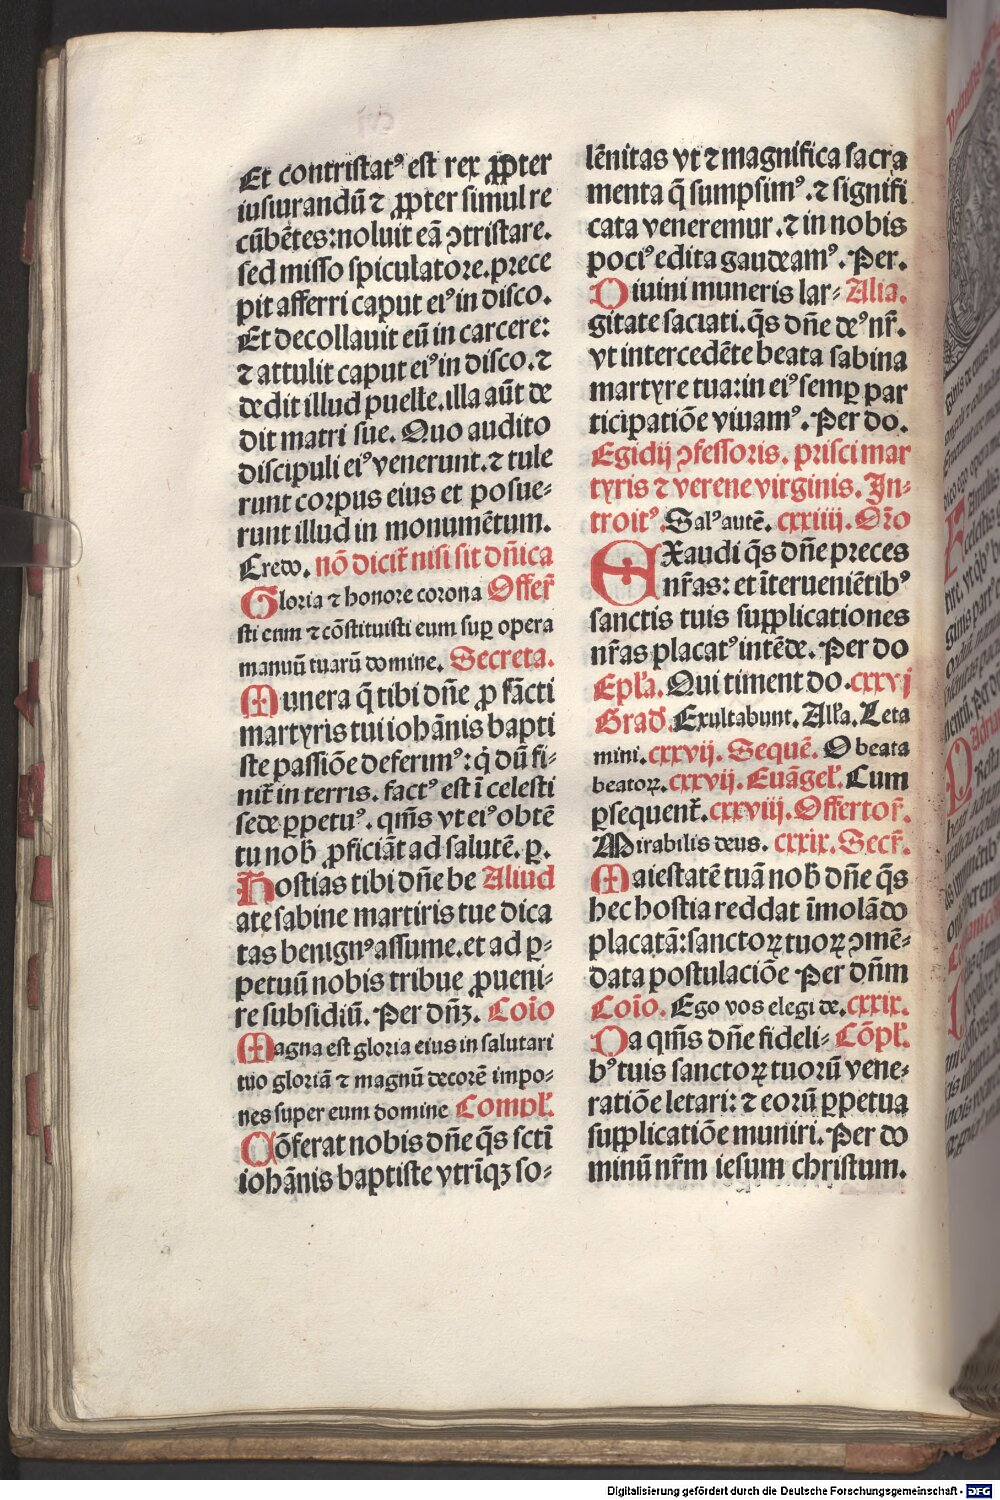 Et contristatꝰ est rex ꝓpter
iusiurandū ⁊ ꝓpter simul re
cūbētes: noluit eā ꝯtristare.
sed misso spiculatore. prece
pit afferri caput eiꝰ in disco.
Et decollauit eū in carcere:
⁊ attulit caput eiꝰ in disco. ⁊
dedit illud puelle. illa aūt de
dit matri sue. Quo audito
discipuli eiꝰ venerunt. ⁊ tule
runt corpus eius et posue⸗
runt illud in monumētum.
Credo. nō dicit᷑ nisi sit dn̄ica
Gloria ⁊ honore corona Offer̄
sti eum ⁊ cōstituisti eum suꝑ opera
manuū tuarū domine. Secreta.
Munera q̄ tibi dn̄e ꝓ sācti
martyris tui iohānis bapti
ste passiōe deferimꝰ: q̇ dū fi⸗
nit᷑ in terris. factꝰ est ī celesti
sede ꝑpetuꝰ. q̄ms vt eiꝰ obtē
tu nob̄ ꝓficiāt ad salutē. ꝑ.
Hostias tibi dn̄e be Aliud
ate sabine martiris tue dica
tas benignꝰ assume. et ad ꝑ⸗
petuū nobis tribue ꝓueni⸗
re subsidiū. Per dn̄ꝫ. Coīo
Magna est gloria eius in salutari
tuo gloriā ⁊ magnū decorē impo⸗
nes super eum domine Compl̄.
Cōferat nobis dn̄e q̄s sctī
iohānis baptiste vtrīqꝫ so⸗
lēnitas vt ⁊ magnifica sacra
menta q̄ sumpsimꝰ. ⁊ signifi
cata veneremur. ⁊ in nobis
pociꝰ edita gaudeamꝰ. Per.
Diuini muneris lar⸗ Alia.
gitate saciati. q̄s dn̄e deꝰ nr̄.
vt intercedēte beata sabina
martyre tua: in eiꝰ semꝑ par
ticipatiōe viuamꝰ. Per do.
Egidij ꝯfessoris. prisci mar
tyris ⁊ verene virginis. In⸗
troitꝰ. Salꝰ autē. cxxiiii. Or̄o
Exaudi q̄s dn̄e preces
nr̄as: et īterueniētibꝰ
sanctis tuis supplicationes
nr̄as placatꝰ intēde. Per do
Epl̄a. Qui timent do. cxxvj
Grad̄. Exultabunt. All̄a. Leta
mini. cxxvij. Sequē. O beata
beatoꝝ. cxxvij. Euāgel̄. Cum
ꝑsequent᷑. cxxviij. Offertor̄.
Mirabilis deus. cxxix. Secr̄.
Maiestatē tuā nob̄ dn̄e q̄s
hec hostia reddat īmolādo
placatā: sanctoꝝ tuoꝝ ꝯmē⸗
data postulaciōe Per dn̄m
Coīo. Ego vos elegi de. cxxix.
Da q̄ms dn̄e fideli⸗ Cōpl̄.
bꝰ tuis sanctoꝝ tuorū vene⸗
ratiōe letari: ⁊ eorū ꝑpetua
supplicatiōe muniri. Per do
minū nr̄m iesum christum.
Digitalisierung gefördert durch die Deutsche Forschungsgemeinschaft - DFG